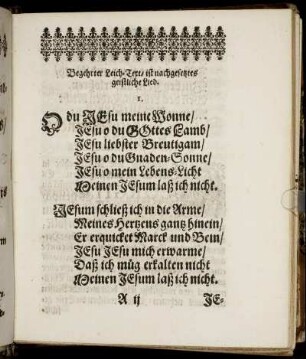 Begehrter Leich-Text/ ist nachgesetztes
geistliche Lied.
1.
O du JEsu meine Wonne/
JEsu o du GOttes Lamb/
JEsu liebster Breutigam/
JEsu o du Gnaden-Sonne/
JEsu o mein Lebens-Licht
Meinen JEsum laß ich nicht.
JEsum schließ ich in die Arme/
Meines Hertzens gantz hinein/
Er erquicket Marck und Bein/
JEsu JEsu mich erwarme/
Daß ich müg erkalten nicht
Meinen JEsum laß ich nicht.
A ij
JE-